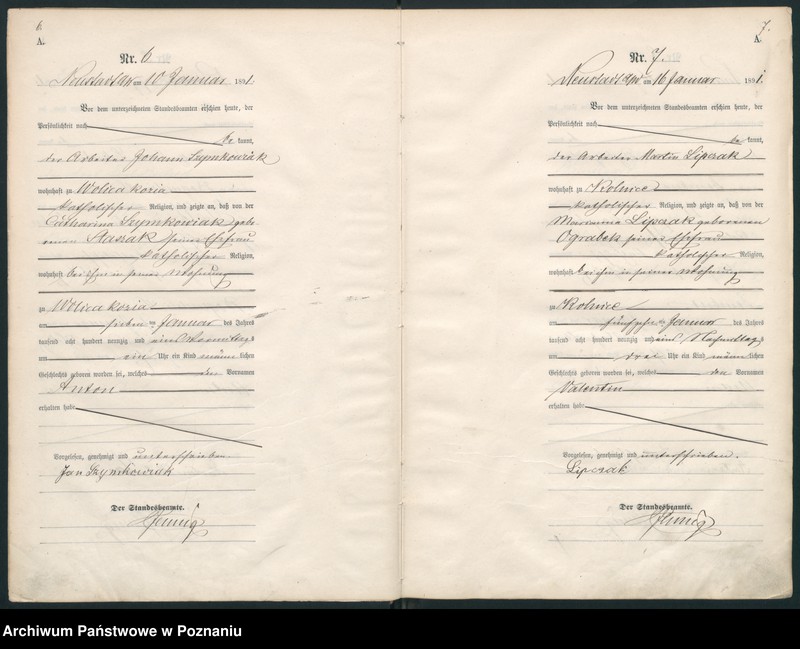 6.
A.
Nr. 6.
Neustadt a/W am 10 Januar 1891.
Vor dem unterzeichneten Standesbeamten erschien heute, der
Persönlichkeit nach
be kannt,
der Arbeiter Johann Szymkowiak
wohnhaft zu Wolica kozia
katholischer Religion, und zeigte an, daß von der
Catharina Szymkowiak gebo-
renen Stasiak seiner Ehefrau
katholischer Religion,
wohnhaft bei ihm in seiner Wohnung
zu Wolica kozia
am sieben ten Januar des Jahres
tausend acht hundert neunzig und eins Vormittags
um ein Uhr ein Kind männ lichen
Geschlechts geboren worden sei, welches den Vornamen
Anton
erhalten habe
Vorgelesen, genehmigt und unterschrieben.
Jan Szymkowiak
Der Standesbeamte.
7.
A.
Nr. 7.
Neustadt a/W am 16 Januar 1891.
Vor dem unterzeichneten Standesbeamten erschien heute, der
Persönlichkeit nach
be kannt,
der Arbeiter Martin Lipczak
wohnhaft zu Kolnice
katholischer Religion, und zeigte an, daß von der
Marianna Lipczak geborenen
Ograbek seiner Ehefrau
katholischer Religion,
wohnhaft bei ihm in seiner Wohnung
zu Kolnice
am fünfzehn ten Januar des Jahres
tausend acht hundert neunzig und eins Nachmittags
um drei Uhr ein Kind männ lichen
Geschlechts geboren worden sei, welches den Vornamen
Valentin
erhalten habe
Vorgelesen, genehmigt und unterschrieben.
Lipczak
Der Standesbeamte.
Archiwum Państwowe w Poznaniu